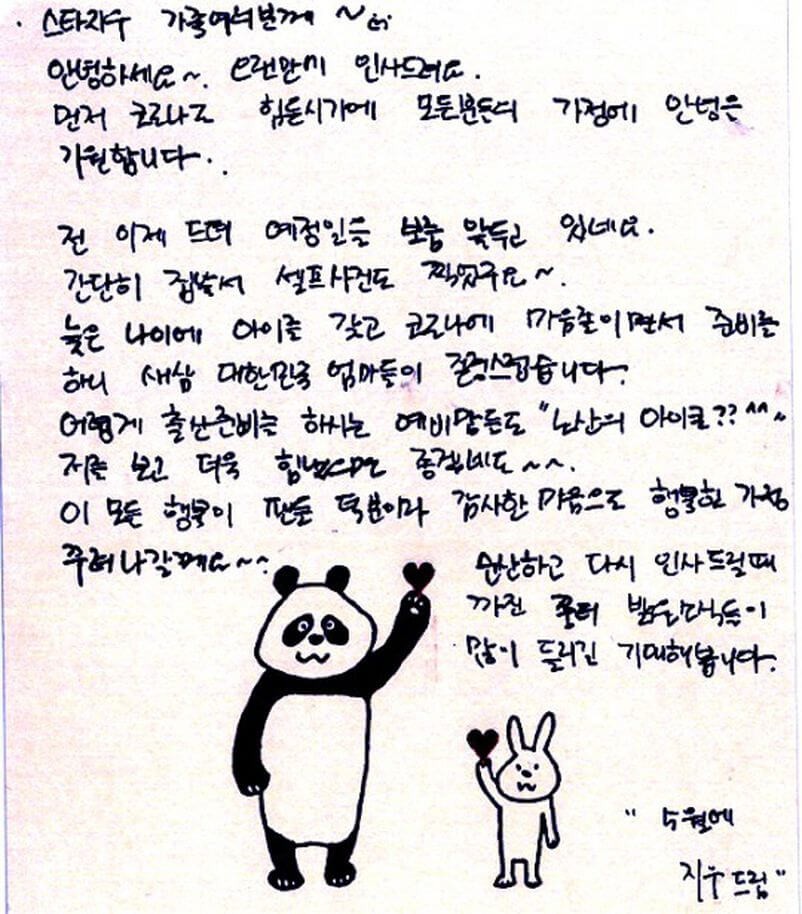 스타지우 가족여러분께 ~
안녕하세요~. 오랜만에 인사드려요.
먼저 코로나로 힘든시기에 모든분들의 가정에 안녕을
기원합니다.
전 이제 드뎌 예정일을 보름 앞두고 있네요.
간단히 집에서 셀프사진도 찍었구요~.
늦은 나이에 아이를 갖고 코로나에 마음졸이면서 준비를
하니 새삼 대한민국 엄마들이 존경스럽습니다.
어렵게 출산준비를 하시는 예비맘들도 "노산의 아이콘?? ^^"
저를 보고 더욱 힘냈으면 좋겠네요~~.
이 모든 행복이 팬들 덕분이라 감사한 마음으로 행복한 가정
꾸려나갈께요~~
순산하고 다시 인사드릴때
까진 좋은 소식들이
많이 들리길 기대해봅니다.
" 5월에
지우드림 "